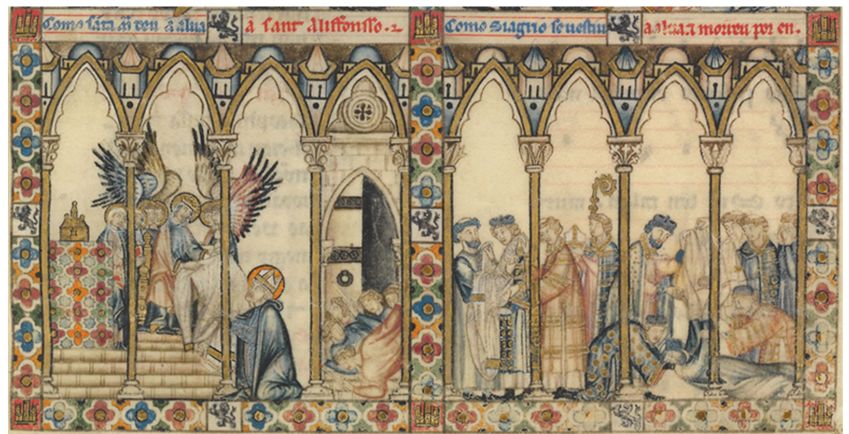 Como santa M̃ deu a alua
a sant Aliffonsso. ⁊
Como Siagrio se vestiu
a alua ⁊ morreu por en.